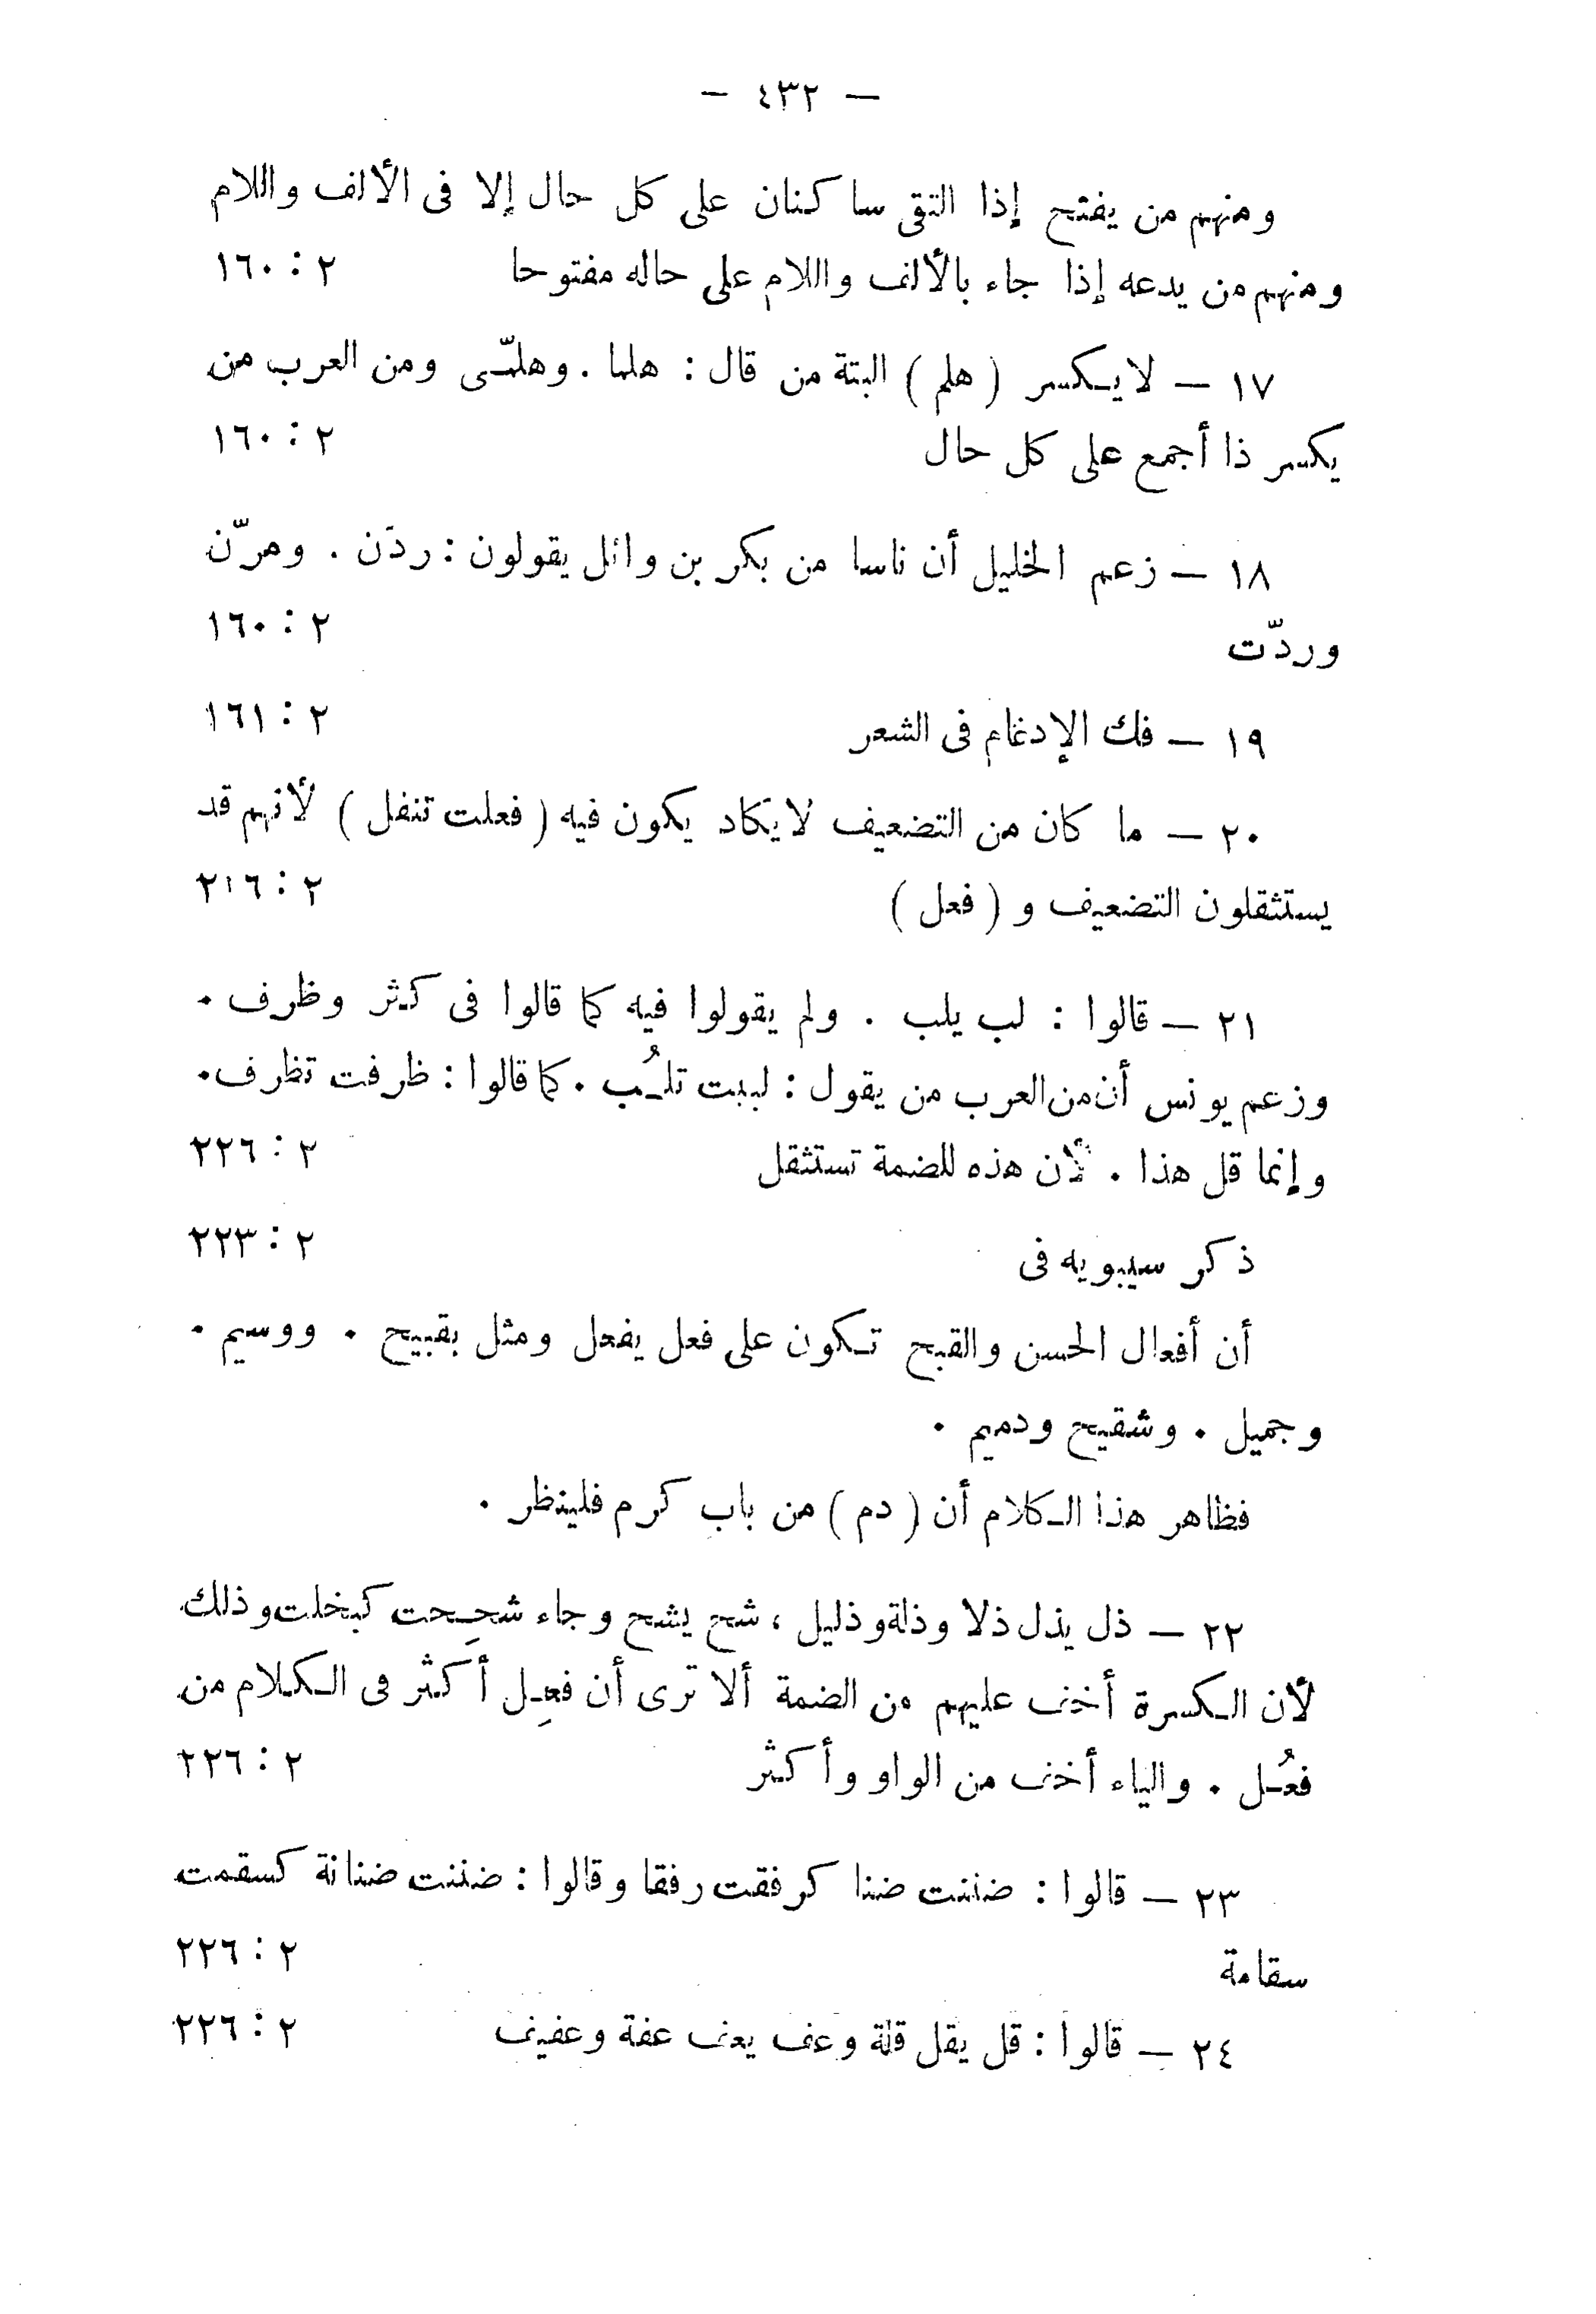 — ٤٣٢ —
ومنهم من يفتح إذا التقى ساكنان على كل حال إلا فى الألف واللام
ومنهم من يدعه إذا جاء بالألف واللام على حاله مفتوحا ٢ : ١٦٠
١٧ — لا يكسر ( هلم ) البتة من قال : هلما . وهلمّى ومن العرب من
يكسر ذا أجمع على كل حال ٢ : ١٦٠
١٨ — زعم الخليل أن ناسا من بكر بن وائل يقولون : ردّن . ومرّن
وردّت ٢ : ١٦٠
١٩ — فك الإدغام فى الشعر ٢ : ١٦١
٢٠ — ما كان من التضعيف لا يكاد يكون فيه ( فعلت تنفل ) لأنهم قد
يستثقلون التضعيف و ( فعل ) ٢ : ٢١٦
٢١ — قالوا : لب يلب . ولم يقولوا فيه كما قالوا فى كثر وظرف .
وزعم يونس أن من العرب من يقول : لببت تلُب . كما قالوا : ظرفت تظرف .
وإنما قل هذا . لأن هذه للضمة تستثقل ٢ : ٢٢٦
ذكر سيبويه فى ٢ : ٢٢٣
أن أفعال الحسن والقبح تكون على فعل يفعل ومثل بقبيح . ووسيم .
وجميل . وشقيح ودميم .
فظاهر هذا الكلام أن ( دم ) من باب كرم فلينظر .
٢٢ — ذل يذل ذلا وذلة وذليل ، شح يشح وجاء شحِحت كبخلت وذلك
لأن الكسرة أخف عليهم من الضمة ألا ترى أن فعِل أكثر فى الكلام من
فعُل . والياء أخف من الواو وأكثر ٢ : ٢٢٦
٢٣ — قالوا : ضننت ضنا كرفقت رفقا وقالوا : ضننت ضنانة كسقمت
سقامة ٢ : ٢٢٦
٢٤ — قالوا : قل يقل قلة وعف يعف عفة وعفيف ٢ : ٢٢٦